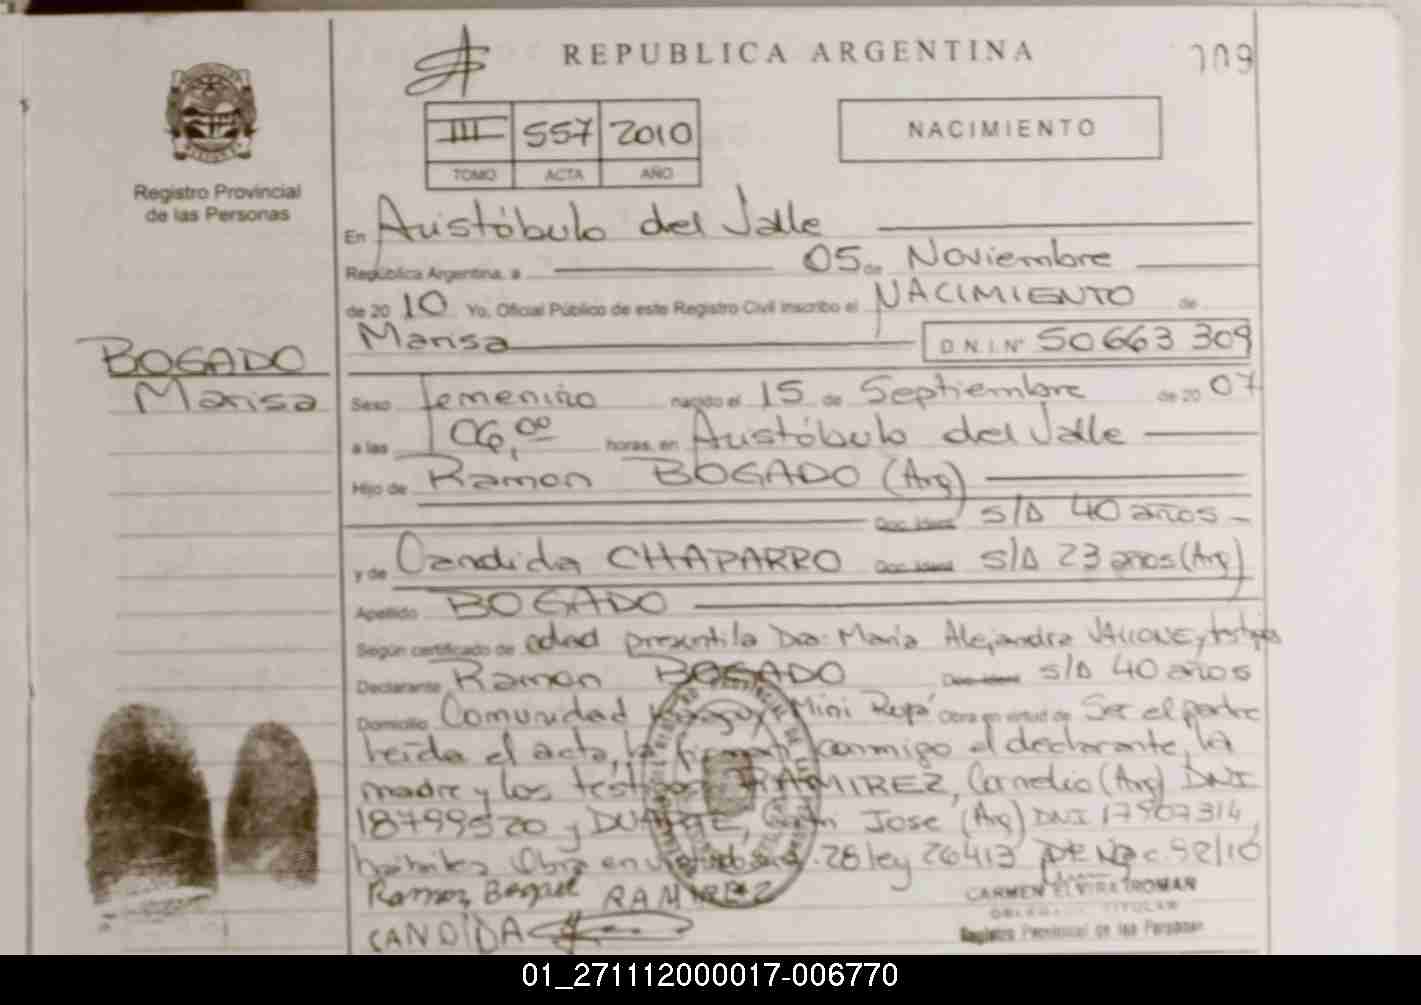 REPUBLICA ARGENTINA
709
III 557 2010
TOMO ACTA AÑO
NACIMIENTO
Registro Provincial
de las Personas
En Aristóbulo del Valle
República Argentina, a 05 de Noviembre
de 2010 Yo, Oficial Público de este Registro Civil inscribo el NACIMIENTO de
Marisa D.N.I. Nº 50663309
BOGADO
Marisa
Sexo femenino nacido el 15 de Septiembre de 2007
a las 06,00 horas, en Aristóbulo del Valle
Hijo de Ramon BOGADO (Arg)
Doc. Ident. S/D 40 años
y de Candida CHAPARRO Doc. Ident. S/D 23 años (Arg)
Apellido BOGADO
Según certificado de edad Dra. Maria Alejandra y testigos
Declarante Ramon BOGADO Doc. Ident. S/D 40 años
Domicilio Comunidad Mini Obra en virtud de Ser el padre
leída el acta, la firman conmigo el declarante, la
madre y los testigos RAMIREZ, Cornelio (Arg) DNI
18799520 y DUARTE, Jose (Arg) DNI 17907314
Obra en 28 ley 26413 92/10
Ramon RAMIREZ
CANDIDA
CARMEN ELVIRA ROMAN
DELEGADA TITULAR
Registro Provincial de las Personas
01_271112000017-006770